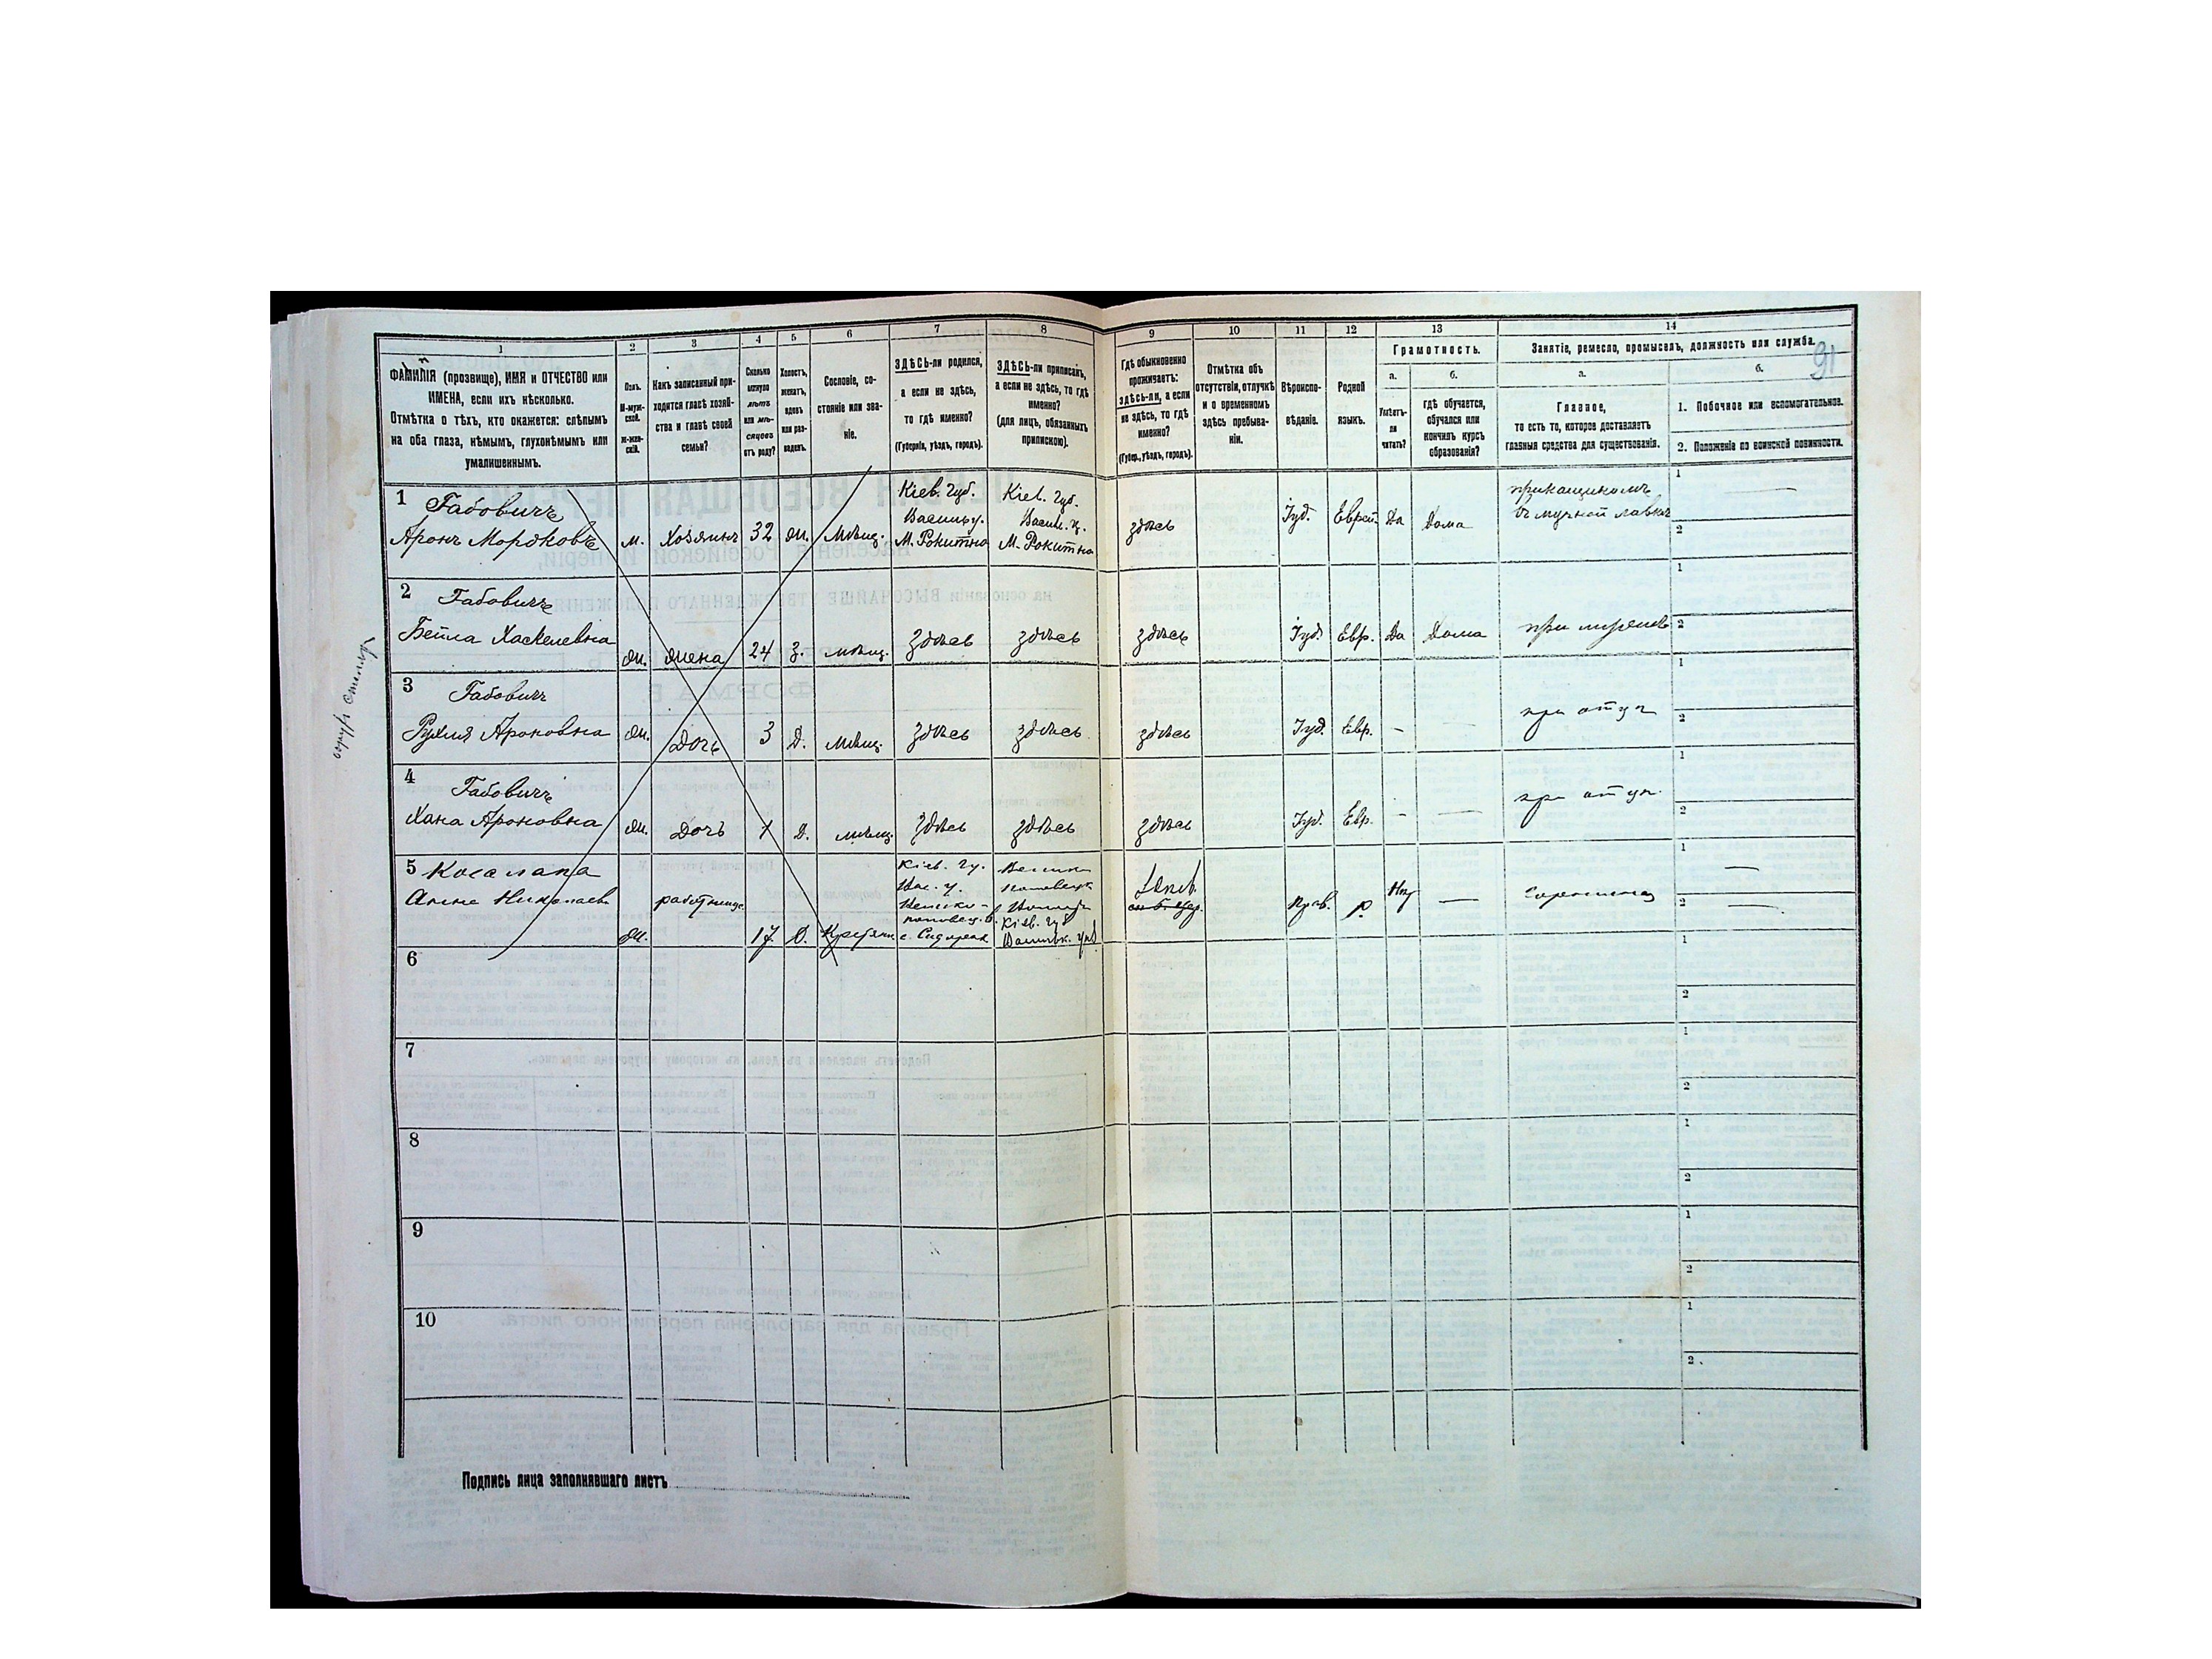 91
1
2
3
4
5
6
7
8
9
10
11
12
13
14
ФАМИЛІЯ (прозвище), ИМЯ и ОТЧЕСТВО или
ИМЕНА, если ихъ нѣсколько.
Отмѣтка о тѣхъ, кто окажется: слѣпымъ
на оба глаза, нѣмымъ, глухонѣмымъ или
умалишеннымъ.
Полъ.
М-муж-
ской.
ж-жен-
скій.
Какъ записанный при-
ходится главѣ хозяй-
ства и главѣ своей
семьи?
Сколько
минуло
лѣтъ
или мѣ-
сяцевъ
отъ роду?
Холостъ,
женатъ,
вдовъ
или раз-
веденъ.
Сословіе, со-
стояніе или зва-
ніе.
ЗДѢСЬ-ли родился,
а если не здѣсь,
то гдѣ именно?
(Губернія, уѣздъ, городъ).
ЗДѢСЬ-ли приписанъ,
а если не здѣсь, то гдѣ
именно?
(для лицъ, обязанныхъ
припискою).
Гдѣ обыкновенно
проживаетъ:
здѣсь-ли, а если
не здѣсь, то гдѣ
именно?
(Губер., уѣздъ, городъ).
Отмѣтка объ
отсутствіи, отлучкѣ
и о временномъ
здѣсь пребыва-
ніи.
Вѣроиспо-
вѣданіе.
Родной
языкъ.
Грамотность.
а.
Умѣетъ-
ли
читать?
б.
гдѣ обучается,
обучался или
кончилъ курсъ
образованія?
Занятіе, ремесло, промыселъ, должность или служба.
а.
Главное,
то есть то, которое доставляетъ
главныя средства для существованія.
б.
1. Побочное или вспомогательное.
2. Положеніе по воинской повинности.
1 Габовичъ
Аронъ Мордковъ
м.
Хозяинъ
32
ж.
Мѣщ.
Кіев. Губ.
Васильк. у.
М. Рокитна
Кіев. Губ.
Васил. у.
М. Рокитна
здѣсь
Іуд.
Еврей.
Да
Дома
прикащикомъ
въ мучной лавкѣ
1
2
2 Габовичъ
Бейла Хаскелевна
ж.
жена
24
З.
мѣщ.
Здѣсь
здѣсь
здѣсь
Іуд.
Евр.
Да
Дома
при
1
2
3 Габовичъ
Рухля Ароновна
ж.
Дочь
3
Д.
мѣщ.
Здѣсь
здѣсь
здѣсь
Іуд.
Евр.
–
при отцѣ
1
2
4 Габовичъ
Хана Ароновна
ж.
Дочь
1
Д.
мѣщ.
Здѣсь
здѣсь
здѣсь
Іуд.
Евр.
–
при отцѣ.
1
2
5
Николаевн
ж.
работница
17
Д.
Крестьян.
Кіев. Гу.
Вас. у.
Кіев. Губ.
Васильк. уѣз.
Прав.
Р.
Нѣт
1
2
6
1
2
7
1
2
8
1
2
9
1
2
10
1
2
Подпись лица заполнявшаго листъ